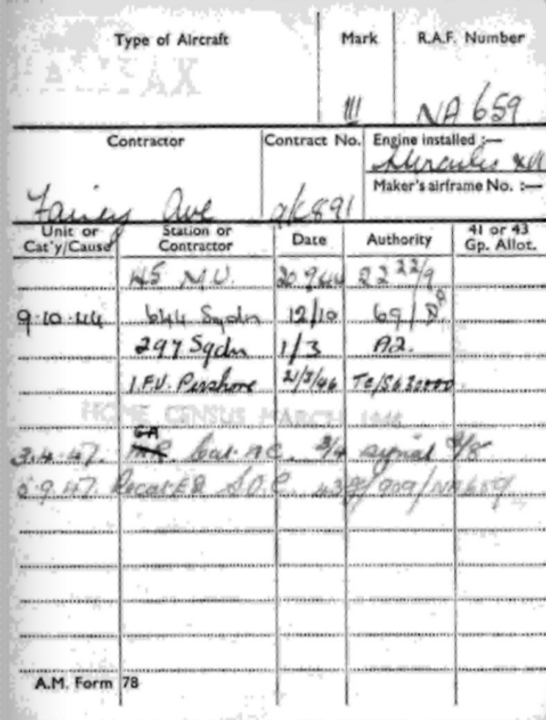 Type of Aircraft Mark R.A.F. Number
HALIFAX III NA 659
Contractor Contract No. Engine installed :—
Hercules XVI
Maker's airframe No. :—
Fairey Ave a/c891
Unit or Cat'y/Cause Station or Contractor Date Authority 41 or 43 Gp. Allot.
45 M.U. 20 9 44 22 22/9
9.10.44 644 Sqdn 12/10 69/
297 Sqdn 1/3 A2.
I.F.U. Pershore 21/3/46
HOME CENSUS MARCH 1946
GA
3.4.47. Cat. A.C. signal
9.47 Recat E S.O.C. /909/NA659
A.M. Form 78